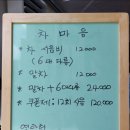 차 마 음
* 차 시음비 12000
(6대 다류)
* 말차 12,000
* 말차 + 6대다류 24,000
* 쿠폰제: 12회 사용 120,000